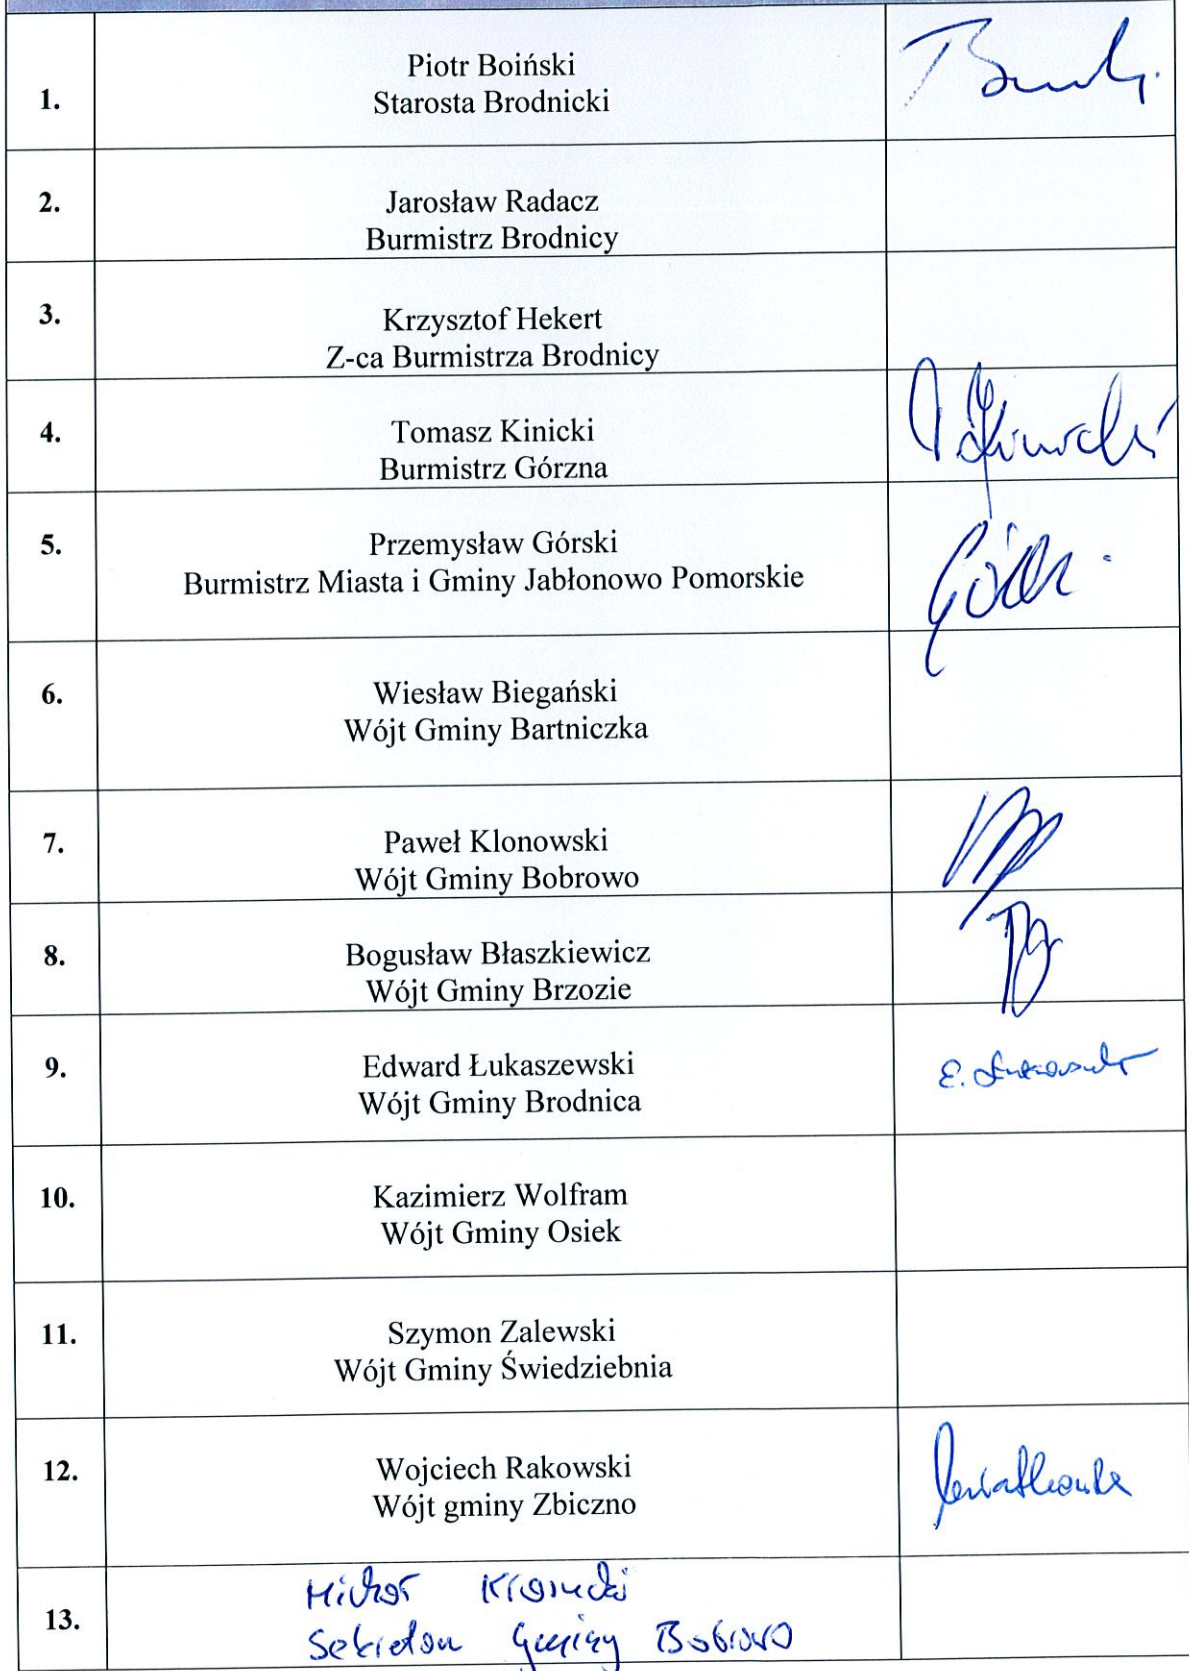 1.
Piotr Boiński
Starosta Brodnicki
2.
Jarosław Radacz
Burmistrz Brodnicy
3.
Krzysztof Hekert
Z-ca Burmistrza Brodnicy
4.
Tomasz Kinicki
Burmistrz Górzna
5.
Przemysław Górski
Burmistrz Miasta i Gminy Jabłonowo Pomorskie
6.
Wiesław Biegański
Wójt Gminy Bartniczka
7.
Paweł Klonowski
Wójt Gminy Bobrowo
8.
Bogusław Błaszkiewicz
Wójt Gminy Brzozie
9.
Edward Łukaszewski
Wójt Gminy Brodnica
E.
10.
Kazimierz Wolfram
Wójt Gminy Osiek
11.
Szymon Zalewski
Wójt Gminy Świedziebnia
12.
Wojciech Rakowski
Wójt gminy Zbiczno
13.
Michał
Sekretarz Gminy Bobrowo